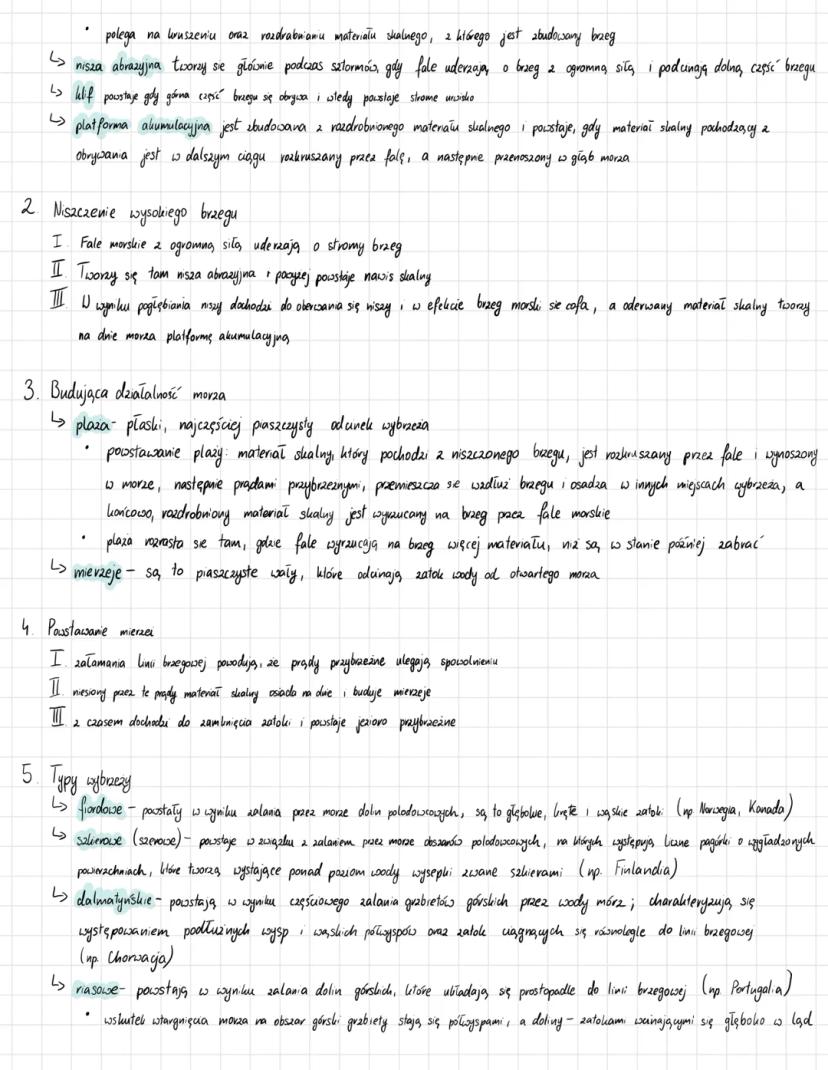 • polega na kruszeniu oraz rozdrabnianiu materiału skalnego, z którego jest zbudowany brzeg
↳ nisza abrazyjna tworzy się głównie podczas sztormów, gdy fale uderzają o brzeg z ogromną siłą i podcinają dolną część brzegu
↳ klif powstaje gdy górna część brzegu się obrywa i wtedy powstaje strome urwisko
↳ platforma akumulacyjna jest zbudowana z rozdrobnionego materiału skalnego i powstaje, gdy materiał skalny pochodzący z
obrywania jest w dalszym ciągu rozkruszany przez falę, a następnie przenoszony w głąb morza
2. Niszczenie wysokiego brzegu
I. Fale morskie z ogromną siłą uderzają o stromy brzeg
II. Tworzy się tam nisza abrazyjna i powyżej powstaje nawis skalny
III. W wyniku pogłębiania niszy dochodzi do oberwania się niszy i w efekcie brzeg morski się cofa, a oderwany materiał skalny tworzy
na dnie morza platformę akumulacyjną
3. Budująca działalność morza
↳ plaża - płaski, najczęściej piaszczysty odcinek wybrzeża
• powstawanie plaży: materiał skalny, który pochodzi z niszczonego brzegu, jest rozkruszany przez fale i wynoszony
w morze, następnie prądami przybrzeżnymi, przemieszcza się wzdłuż brzegu i osadza w innych miejscach wybrzeża, a
końcowo, rozdrobniony materiał skalny jest wyrzucany na brzeg przez fale morskie
• plaża rozrasta się tam, gdzie fale wyrzucają na brzeg więcej materiału, niż są w stanie później zabrać
↳ mierzeje - są to piaszczyste wały, które odcinają zatok wody od otwartego morza
4. Powstawanie mierzei
I. załamania linii brzegowej powodują, że prądy przybrzeżne ulegają spowolnieniu
II. niesiony przez te prądy materiał skalny osiada na dnie i buduje mierzeje
III. z czasem dochodzi do zamknięcia zatoki i powstaje jezioro przybrzeżne
5. Typy wybrzeży
↳ fiordowe - powstały w wyniku zalania przez morze dolin polodowcowych, są to głębokie, kręte i wąskie zatoki (np. Norwegia, Kanada)
↳ szkierowe (szerowe) - powstaje w związku z zalaniem przez morze obszarów polodowcowych, na których występują liczne pagórki o wygładzonych
powierzchniach, które tworzą wystające ponad poziom wody wysepki zwane szkierami (np. Finlandia)
↳ dalmatyńskie - powstają w wyniku częściowego zalania grzbietów górskich przez wody mórz; charakteryzują się
występowaniem podłużnych wysp i wąskich półwyspów oraz zatok ciągnących się równolegle do linii brzegowej
(np. Chorwacja)
↳ riasowe - powstają w wyniku zalania dolin górskich, które układają się prostopadle do linii brzegowej (np. Portugalia)
• wskutek wtargnięcia morza na obszar górski grzbiety stają się półwyspami, a doliny - zatokami wcinającymi się głęboko w ląd